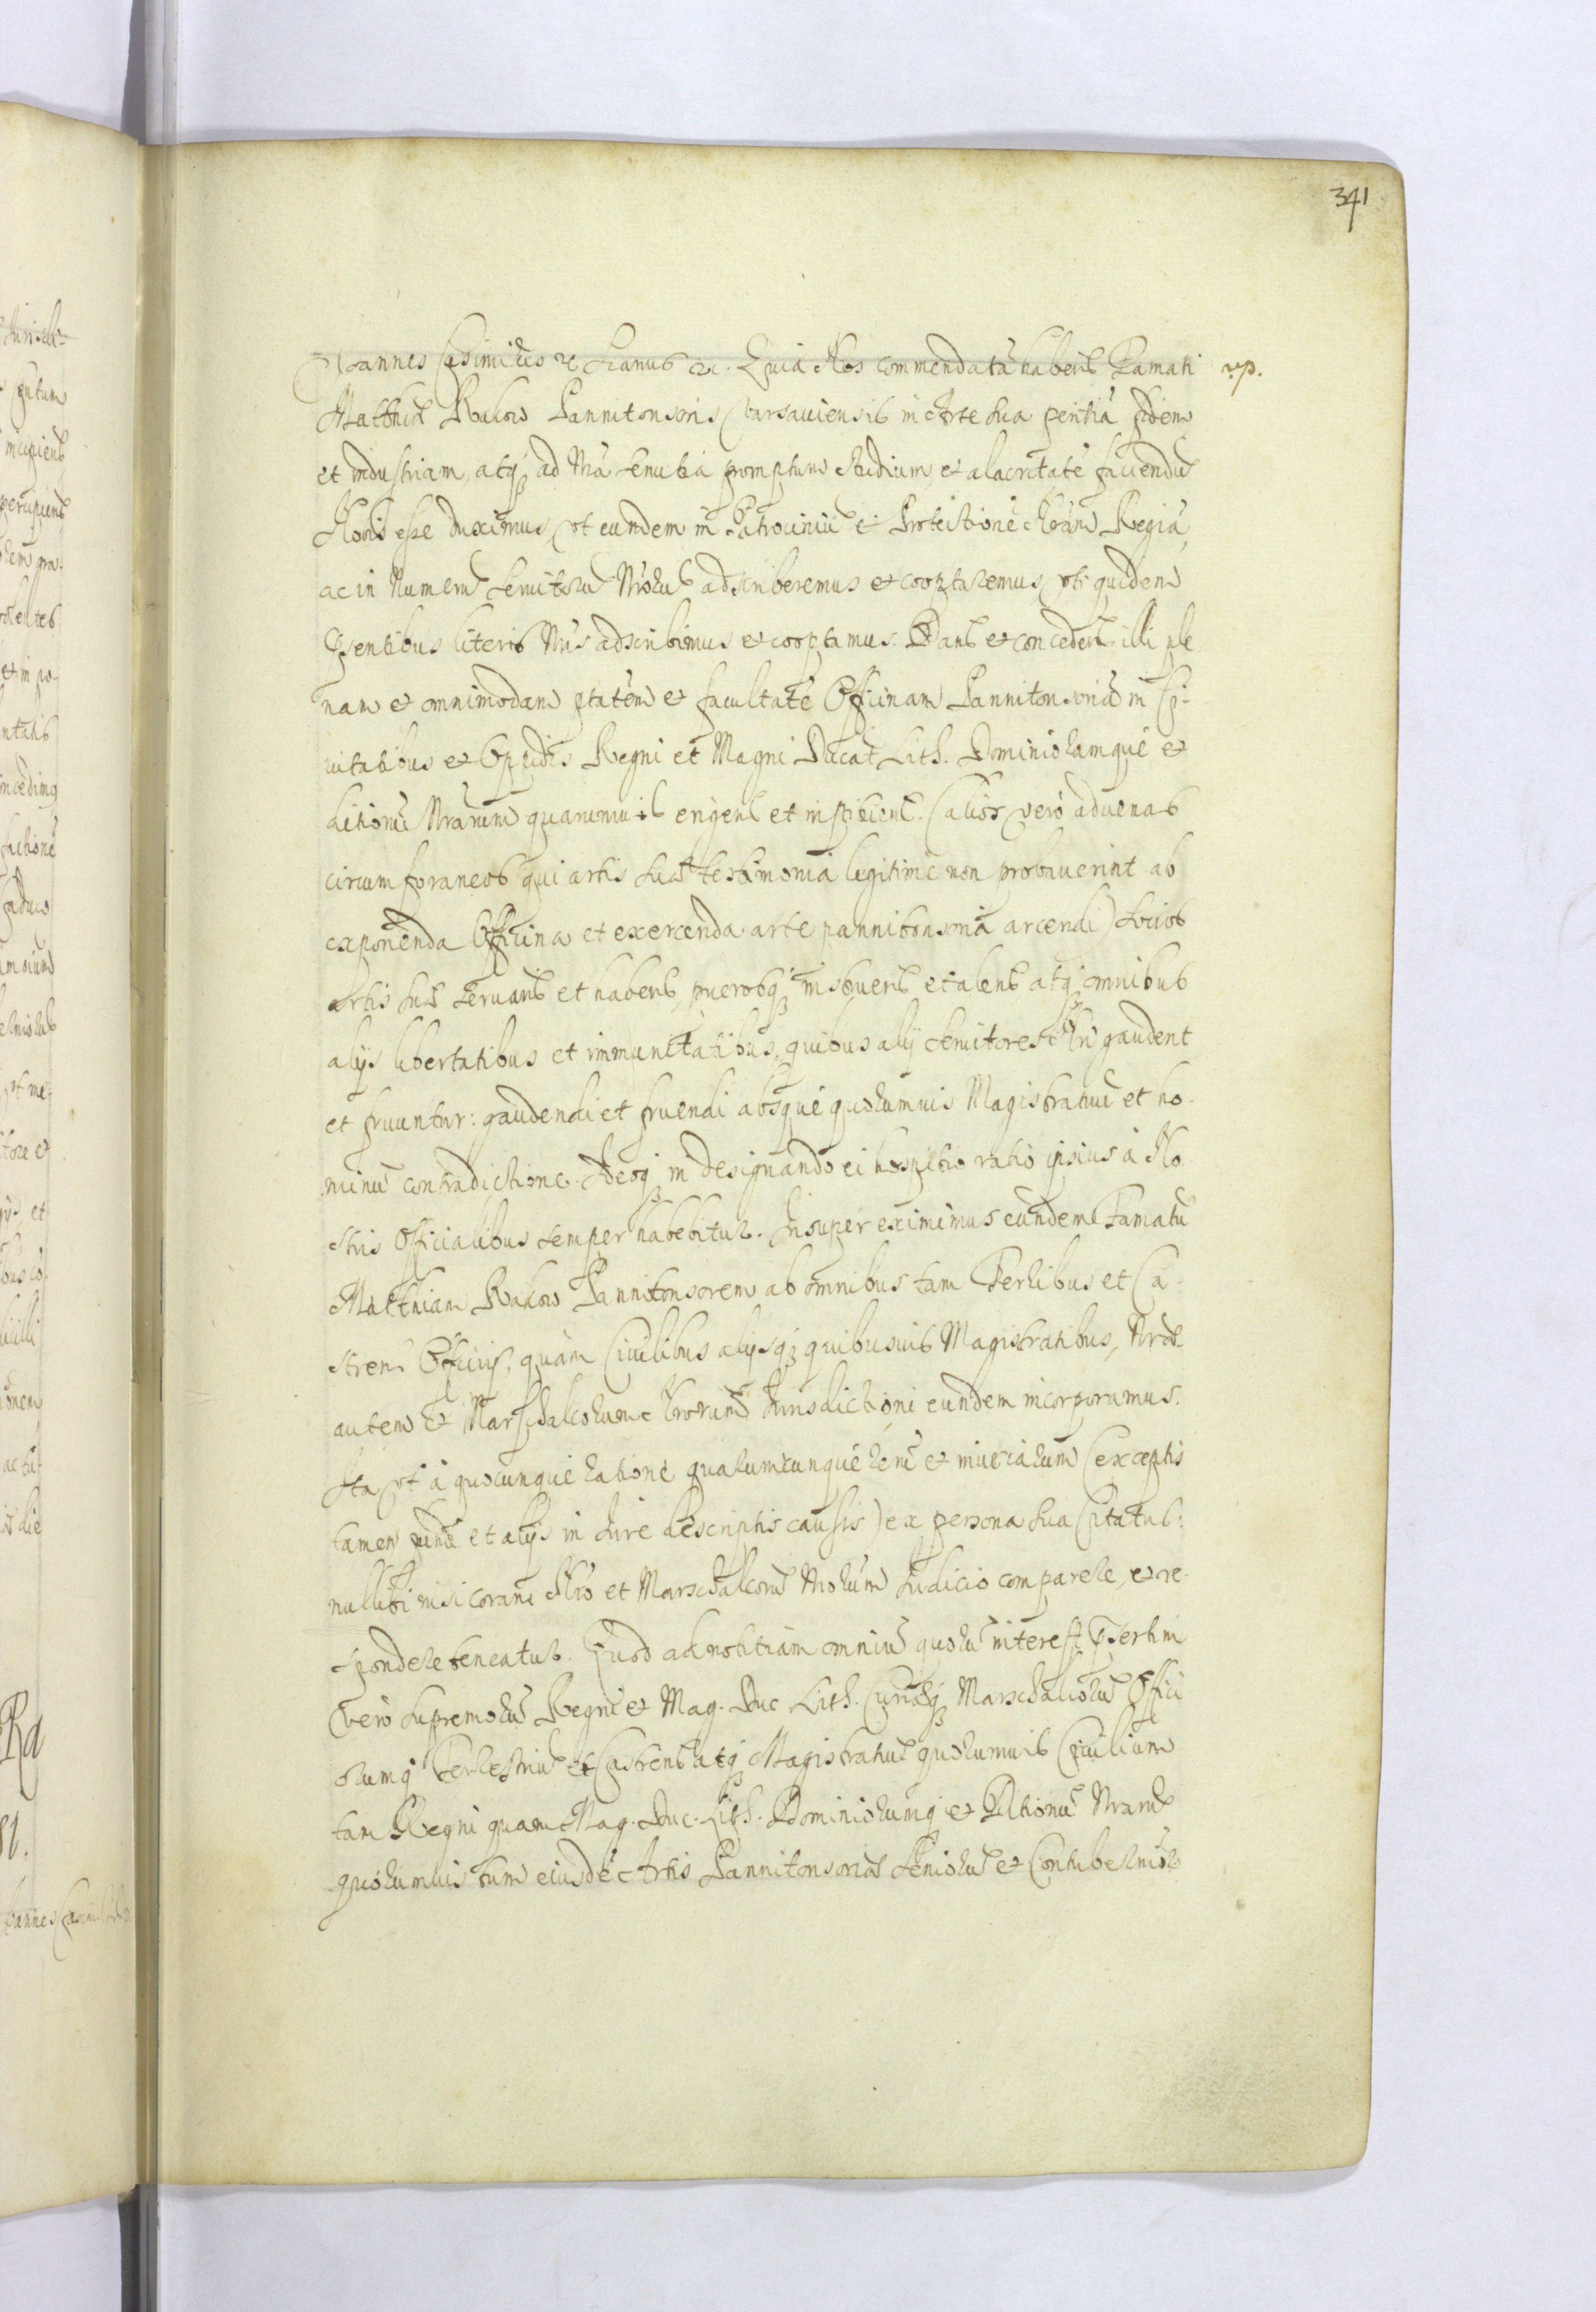 341
Ioannes Casimirus etc. Quia Nos commendatā habens Famati np.
Matthiæ Rukow Pannitonsoris Varsauiensis in Arte sua peritiā fidem
et industriam, atq, ad Nrā seruitia promptum studium, et alacritatē faciendū
Nobis esse duximus, vt eundem in Patrociniū et Protectionē Nrām Regiā,
ac in Numerū seruitorū Nrorū adscriberemus et cooptaremus, vti quidem
Psentibus literis Nris adscribimus et cooptamus. Dans et concedens illi ple
nam et omnimodam ptatem et facultatē Officinam Pannitonsoriā in Ci-
uitatibus et Oppidis Regni et Magni Ducat Lith. Dominiorumquè et
ditionū Nrarum quarumuis erigens et instituens. (alios verò aduenas
circumforaneos qui artis suæ testimonia legitimè non probauerint ab
exponenda Officina et exercenda arte pannitonsoriā arcendi) socios
Artis suæ seruans et habens, puerosq, instruens et alens atq, omnibus
alijs libertatibus et immunitatibus, quibus alij seruitores Nri gaudent
et fruuntur: gaudendi et fruendi absquè quorumuis Magistratuū et ho-
minū contradictione. Adeoq, in designando ei hospitio ratio ipsius à No-
stris Officialibus semper habebitur. Insuper eximimus eundem Famatū
Matthiam Rukow Pannitonsorem ab omnibus tam Terribus et Ca-
stren Officijs, quàm Ciuilibus alijsq, quibusuis Magistratibus, Nræ
autem et Marschalcorum Nrorum Iurisdictioni eundem incorporamus.
Ita vt à quocunquè ratione qualumcunquè rerū et iniuriarum (exceptis
tamen fundi et alijs in Iure descriptis causis) ex persona sua Citatus:
nullibi nisi coram Nro et Marschalcorū Nrorum Iudicio comparere, et re-
spondere teneatur. Quod ad notitiam omniū quorū interest Psertim
verò supremorū Regni et Mag. Duc Lith. Curiæq, Marschalcorū Offici
orumq, Terrestriū et Castrens atq, Magistratuū quorumuis Ciuilium
tam Regni quam Mag. Duc. Lith. Dominiorumq, et Ditionū Nrarū
quorumuis tum eiusdē Artis Pannitonsoriæ Seniorū et Contubernior